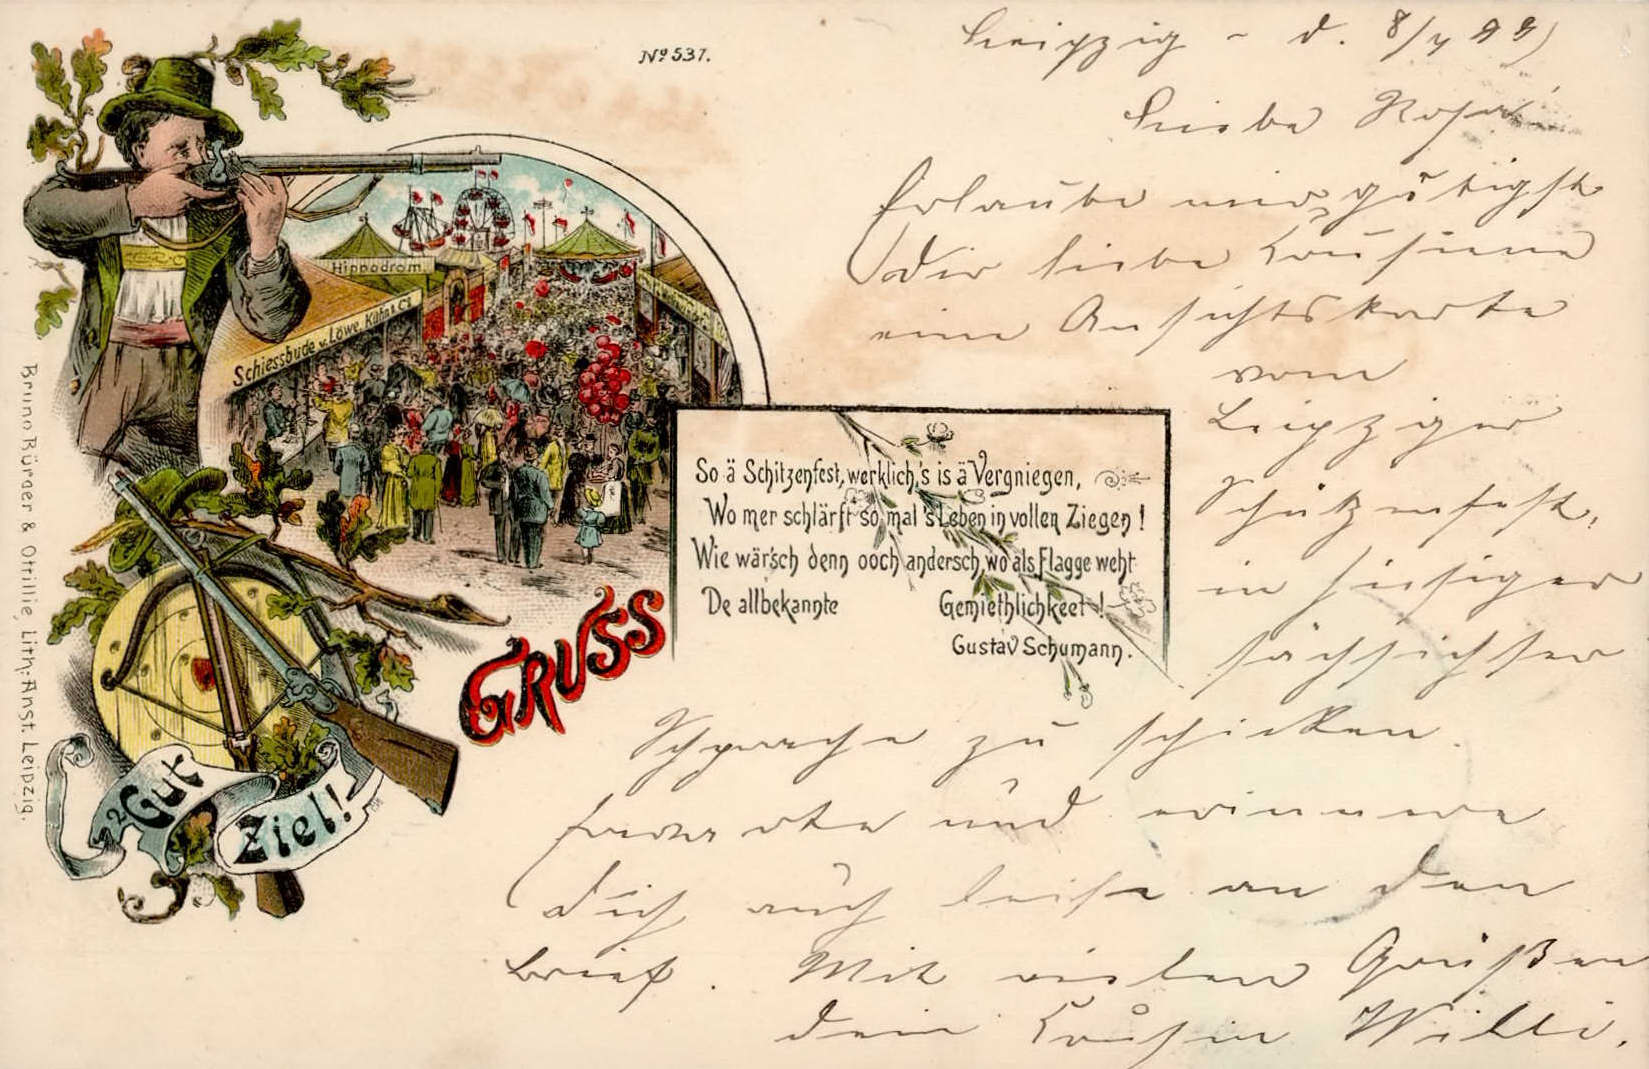 No 537.
Leipzig - d. 8/7 99
Liebe Rosa!
Erlaube mir gütigst
Dir liebe Kousiene
eine Ansichtskarte
vom
Leipziger
Schützenfest,
in hiesiger
sächsischer
Sprache zu schicken.
und erinnere
Dich auch leise an den
Brief. Mit vielen Grüßen
dein Kousin Willi.
Hippodrom
Schiessbude v. Löwe, Kühn & Co
So ä Schitzenfest, werklich,'s is ä Vergniegen,
Wo mer schlärft so mal 's Leben in vollen Ziegen!
Wie wär'sch denn ooch andersch, wo als Flagge weht
De allbekannte Gemiethlichkeet!
Gustav Schumann.
GRUSS
Gut
Ziel!
Bruno Bürger & Ottillie, Lith: Anst. Leipzig.